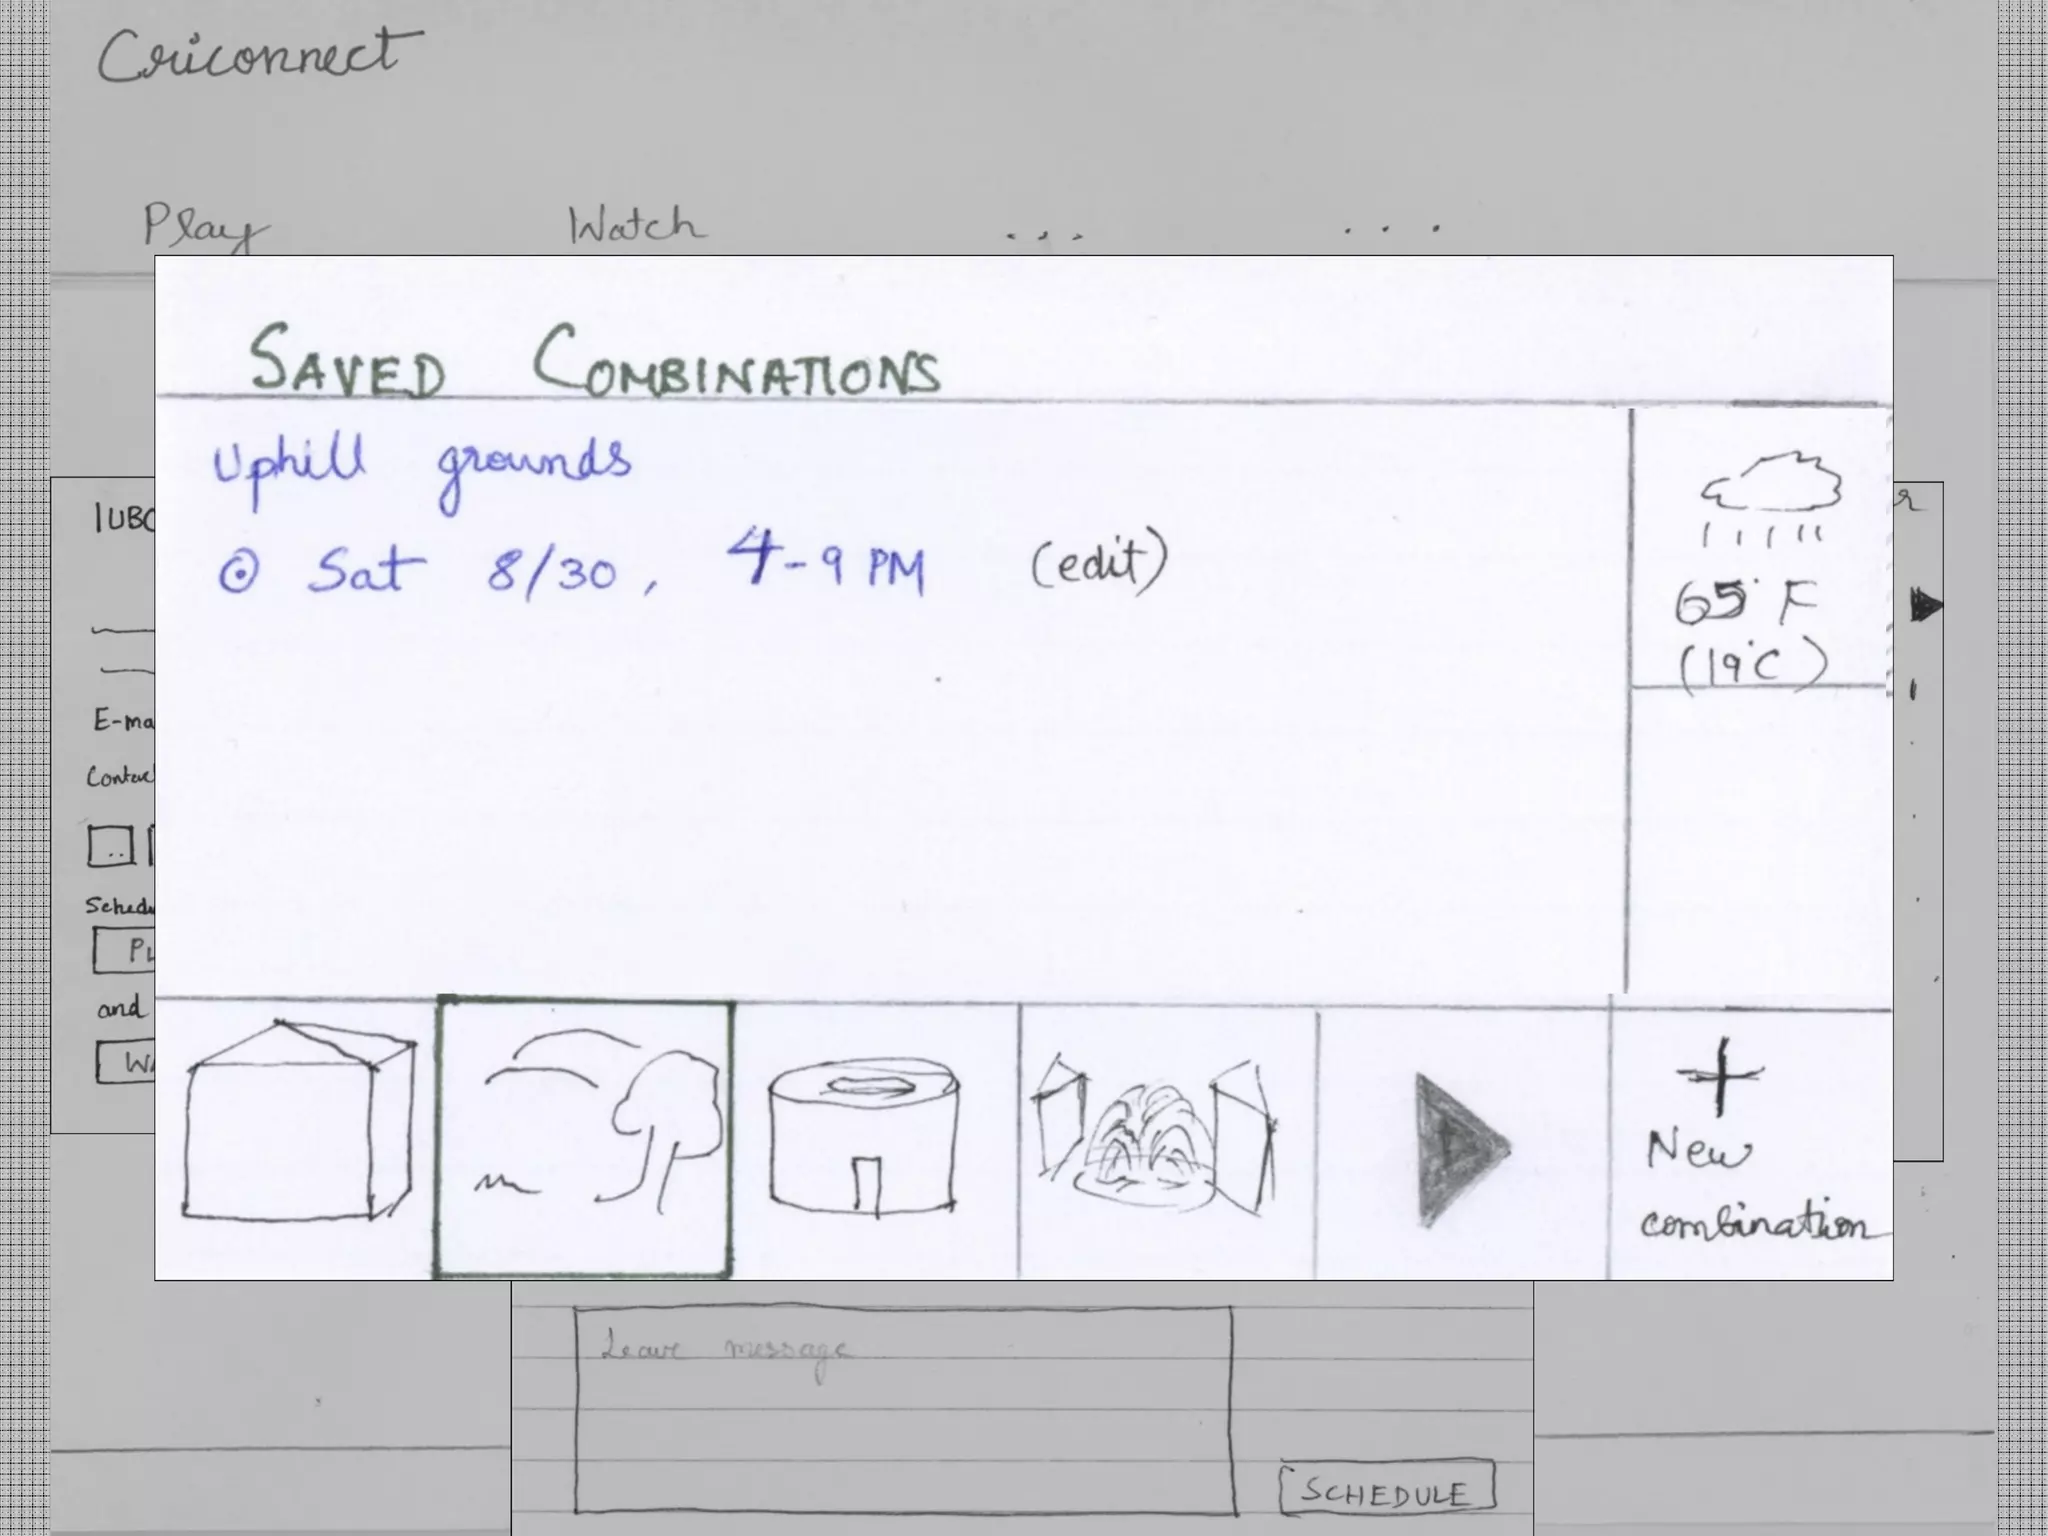 Criconnect
Play Watch ... ...
SAVED COMBINATIONS
Uphill grounds
Sat 8/30, 4-9 PM (edit)
65°F
(19°C)
IUBC
E-ma
Contac
Schedu
PL
and
WA
+
New
combination
Leave message
SCHEDULE